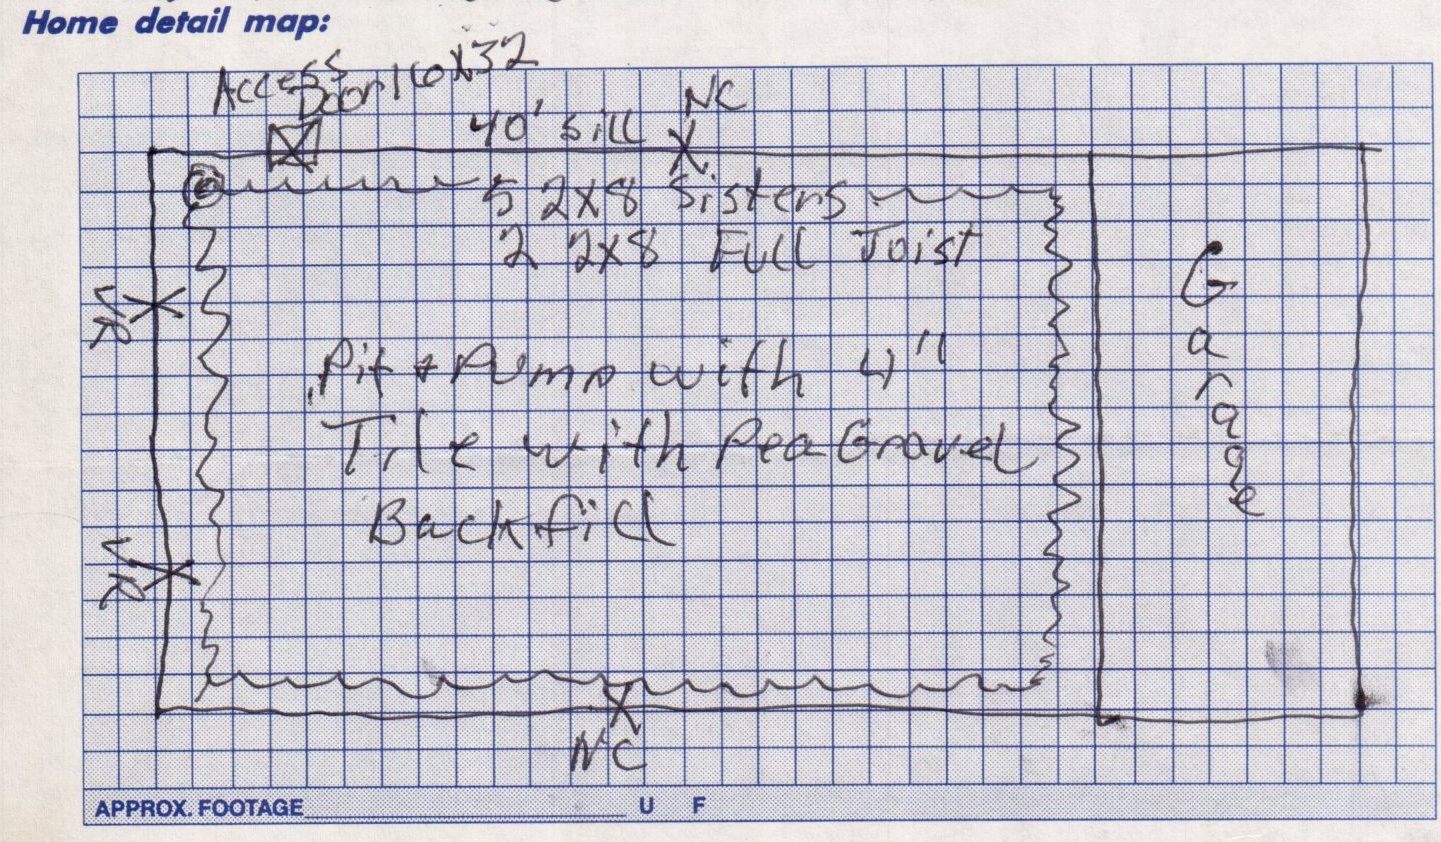 Home detail map:
Access
Door 16x32
40' sill
NC
5 2x8 Sisters
2 2x8 Full Joist
NC
Garage
Pit + Pump with 4"
Tile with Pea Gravel
Backfill
NC
NC
APPROX. FOOTAGE U F